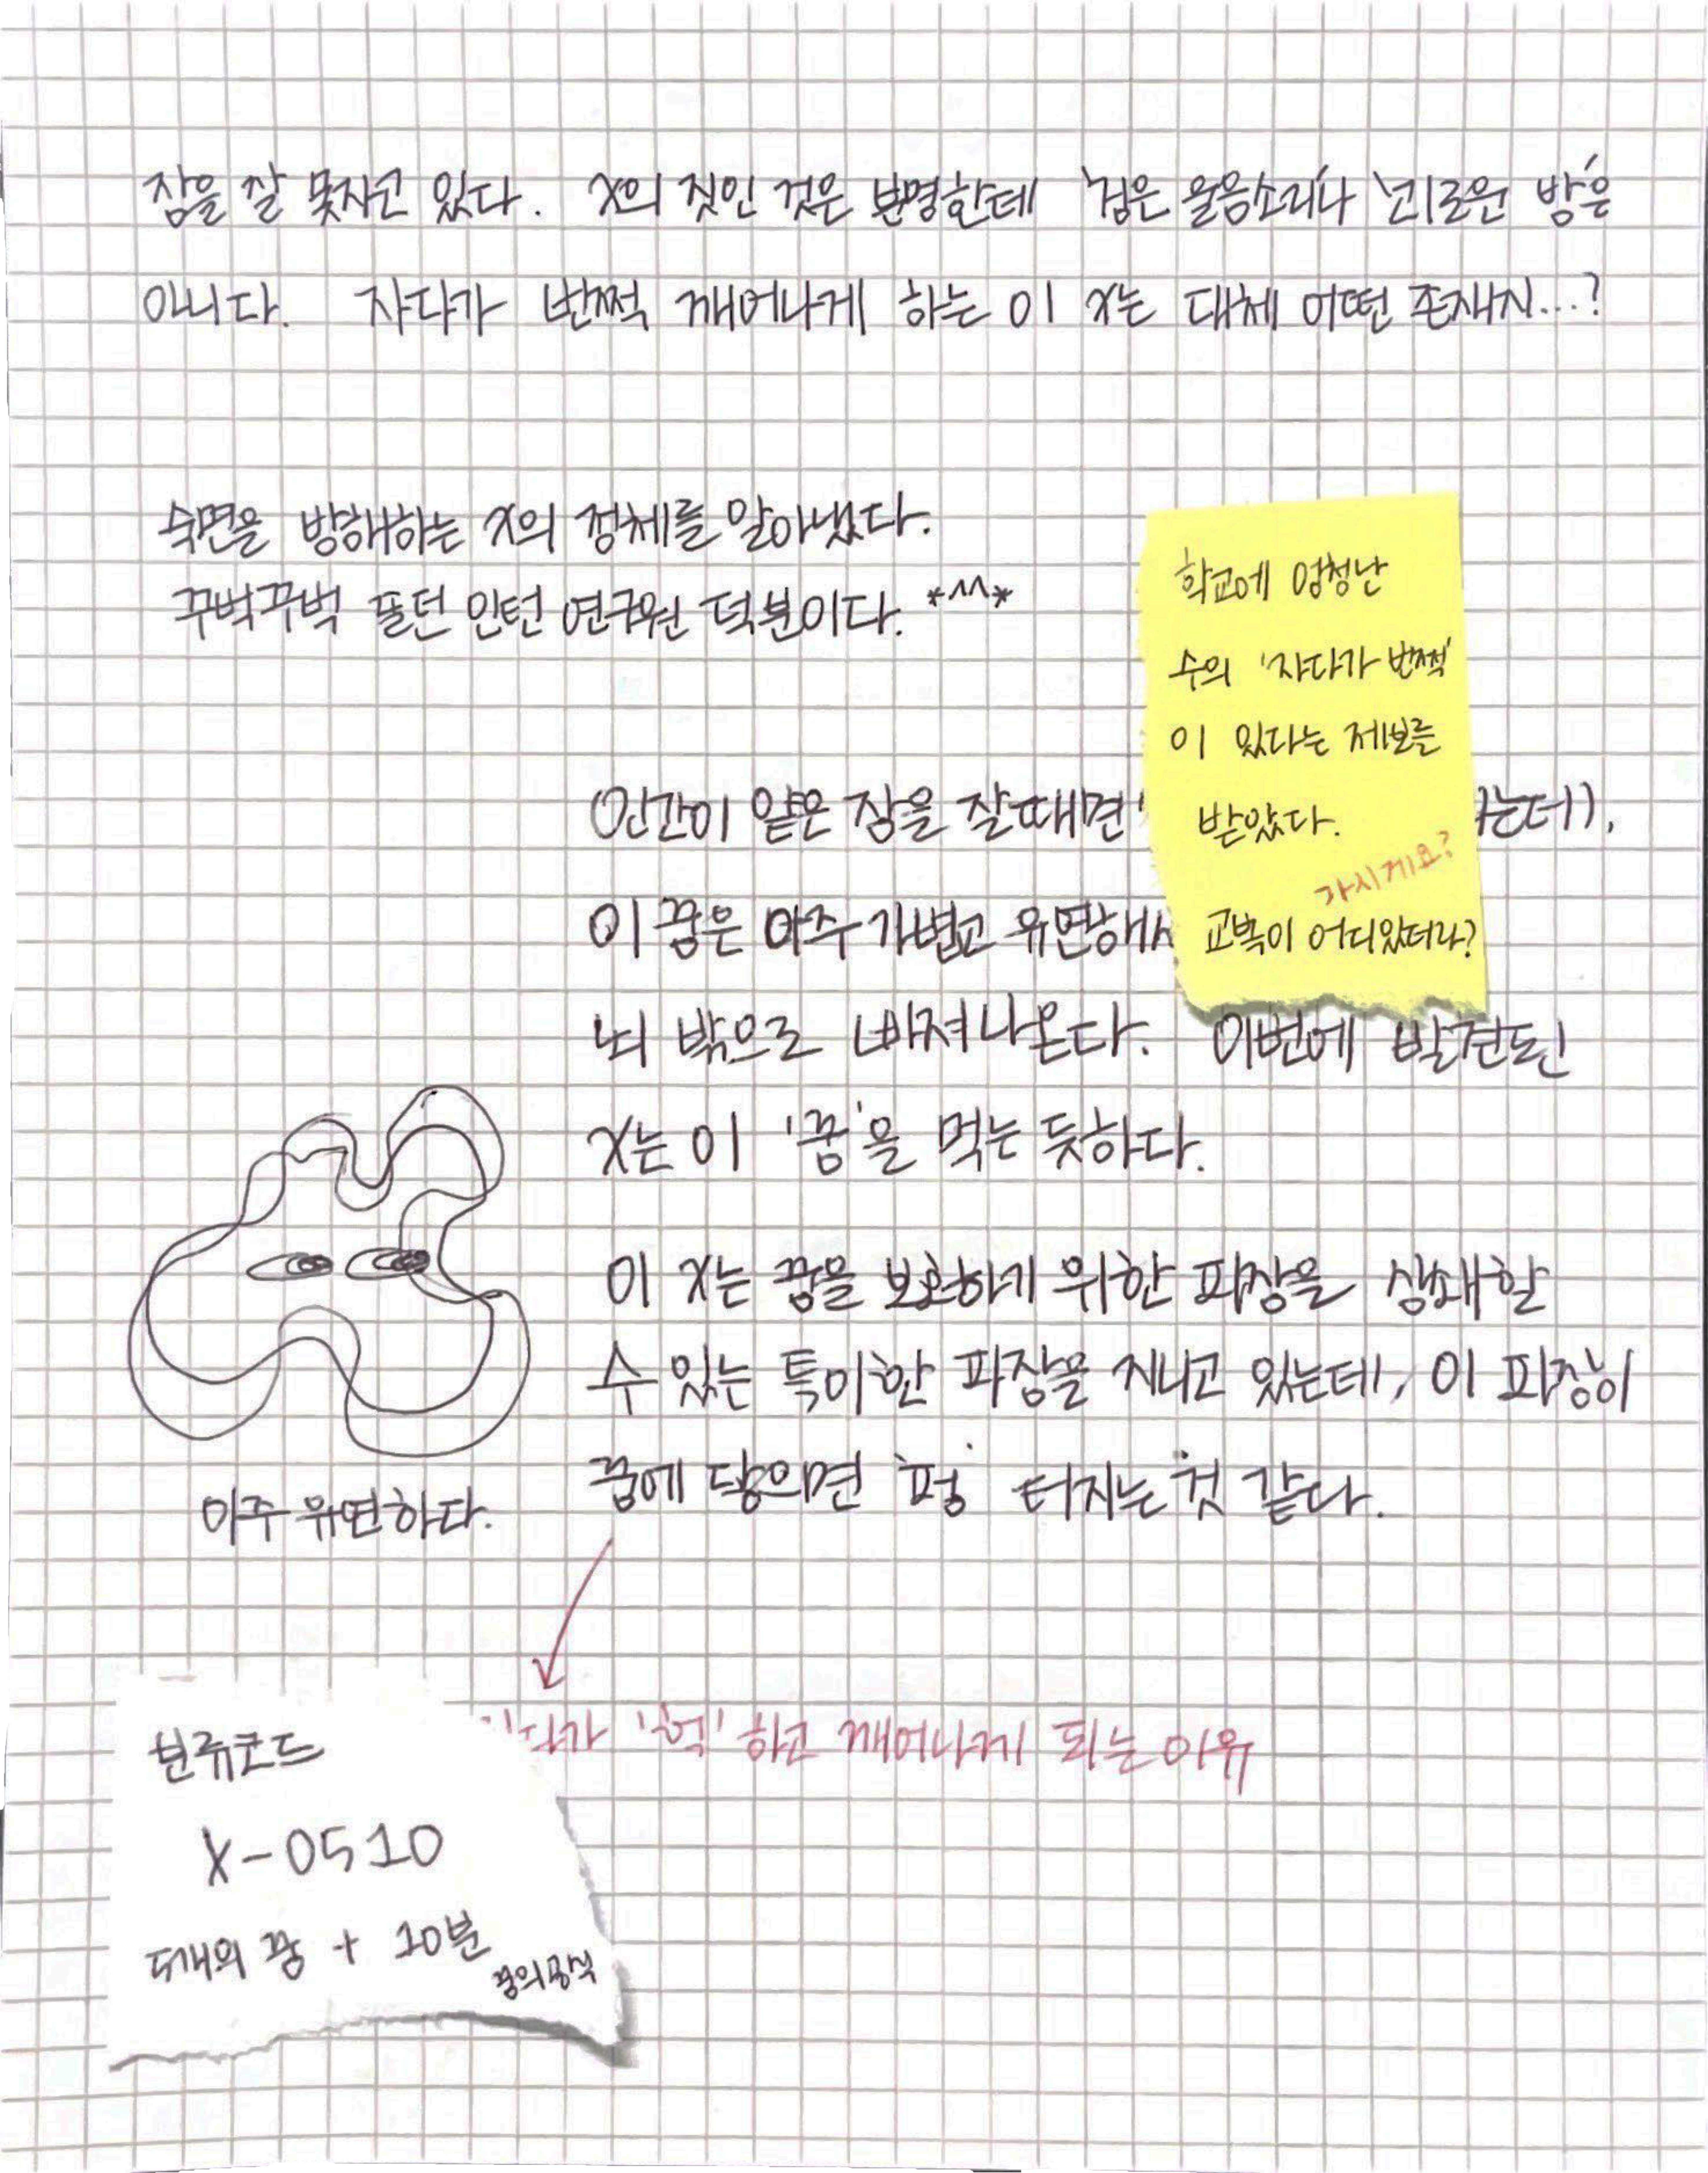 잠을 잘 못자고 있다. X의 짓인 것은 분명한데 '검은 울음소리'나 '괴로운 밤'은
아니다. 자다가 번쩍 깨어나게 하는 이 X는 대체 어떤 존재지...?
숙면을 방해하는 X의 정체를 알아냈다.
꾸벅꾸벅 졸던 인턴 연구원 덕분이다. *^^*
학교에 엄청난
수의 '자다가 번쩍'
이 있다는 제보를
받았다.
가시게요?
교복이 어디있더라?
(인간이 얕은 잠을 잘때면 는데),
이 꿈은 아주 가볍고 유연해서
뇌 밖으로 빠져나온다. 이번에 발견된
X는 이 '꿈'을 먹는 듯하다.
이 X는 꿈을 보호하기 위한 파장을 상쇄할
수 있는 특이한 파장을 지니고 있는데, 이 파장이
꿈에 닿으면 '펑' 터지는 것 같다.
아주 유연하다.
'헉' 하고 깨어나게 되는 이유
분류코드
X-0510
5개의 꿈 + 10분
꿈의